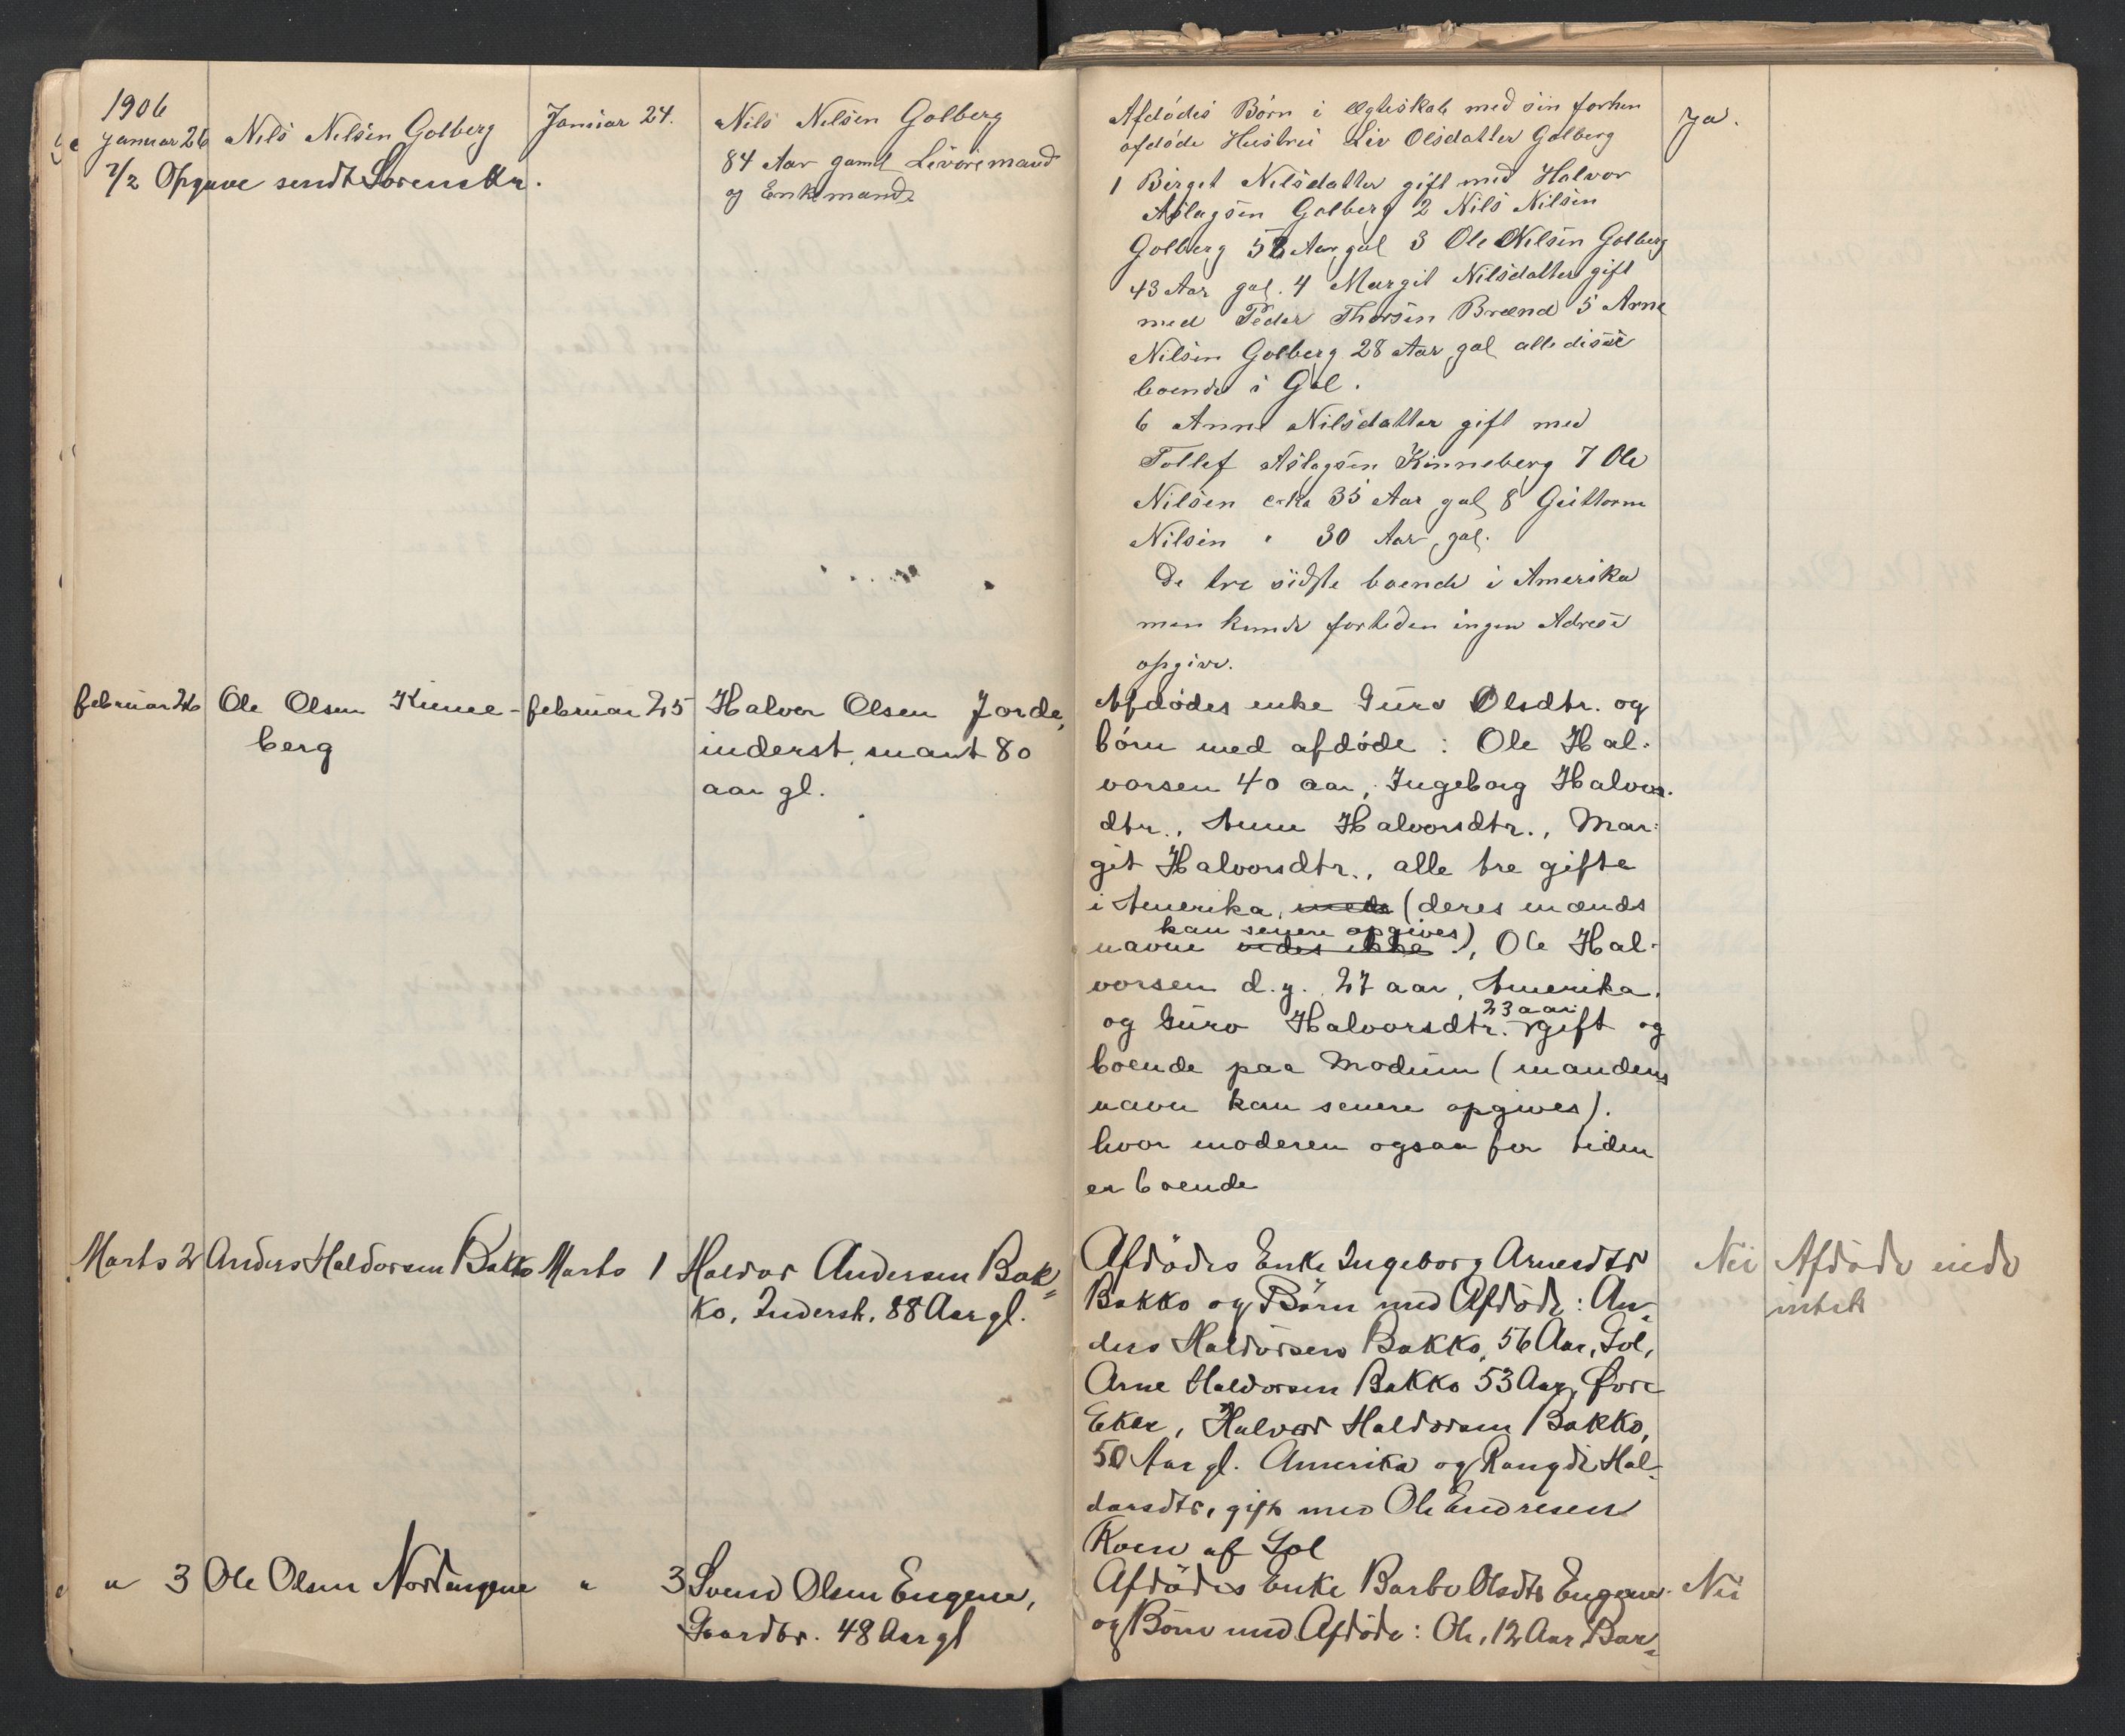 1906
Januar 26 Nils Nilsen Golberg Januar 24. Nils Nilsen Golberg
84 Aar gaml Livøremand
og Enkemand.
7/2 Opgave sendt Sorenskr.
Afdødes Børn i Ægteskab med sin forhen
afdøde Hustru Liv Olsdatter Golberg
1 Birget Nilsdatter gift med Halvor
Aslagsen Golberg 2 Nils Nilsen
Golberg 52 Aar gal 3 Ole Nilsen Golberg
43 Aar gal. 4 Margit Nilsdatter gift
med Peder Thorsen Brænd 5 Arne
Nilsen Golberg 28 Aar gal alle disse
boende i Gol.
6 Anne Nilsdatter gift med
Tollef Aslagsen Kinneberg 7 Ole
Nilsen c-ka 35 Aar gal 8 Guttorm
Nilsen " 30 Aar gal.
De tre sidste boende i Amerika
men kunde fortiden ingen Adresse
opgive.
Ja.
februar 26 Ole Olsen Kinne-
berg
februar 25 Halvor Olsen Jorde,
inderst, snart 80
aar gl.
Afdødes enke Guro Olsdtr. og
børn med afdøde: Ole Hal-
vorsen 40 aar, Ingeborg Halvors-
dtr., Anne Halvorsdtr., Mar-
git Halvorsdtr., alle tre gifte
i Amerika, med (deres mænds
kan senere opgives)
navne vides ikke), Ole Hal-
vorsen d.y. 27 aar, Amerika,
23 aar
og Guro Halvorsdtr. gift og
boende paa Modum (mandens
navn kan senere opgives).
hvor moderen ogsaa for tiden
er boende
Marts 2 Anders Haldorsen Bakko Marts 1 Haldor Andersen Bak-
ko, Inderst, 88 Aar gl.
Afdødes Enke Ingeborg Arnesdtr
Bakko og Børn med Afdøde: An-
ders Haldorsen Bakko, 56 Aar, Gol,
Arne Haldorsen Bakko 53 Aar, Øvre
Eker, Halvor Haldorsen Bakko,
50 Aar gl. Amerika og Rangdi Hal-
dorsdtr, gift med Ole Endresen
Roen af Gol
Nei Afdøde eiede
intet
" 3 Ole Olsen Nordengene " 3 Svend Olsen Engene,
Gaardbr. 48 Aar gl
Afdødes Enke Barbo Olsdtr Engene
og Børn med Afdøde: Ole, 12 Aar, Bar-
Nei